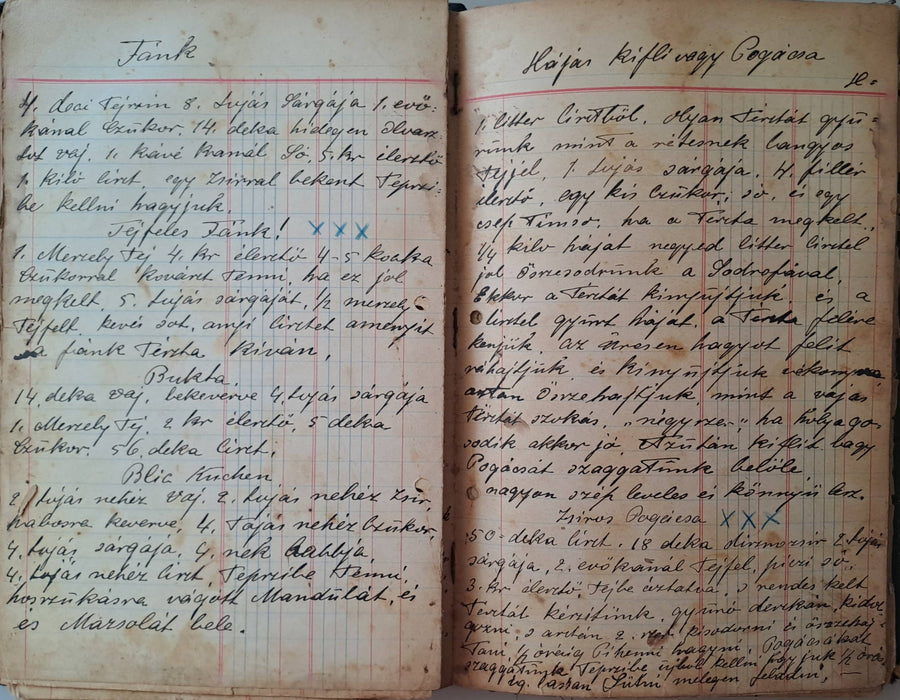 Fánk
4. deci Tejszin 8. tojás Sárgája 1. evő-
kánal Czukor. 14. deka hidegen Olvasz-
tot vaj. 1. kávé kanál Só, 5. kr élesztő
1. kiló liszt, egy zsirral bekent Tepszi-
be kellni hagyjuk.
Tejfeles Fánk! x x x
1. Merzely Tej 4. kr élesztő 4-5 kocka
Czukorral kovászt Tenni, ha ez jol
megkelt, 5. tojás sárgáját, 1/2 merzely
Tejfelt, kevés sot, anyi lisztet amenyit
a fánk Tészta kiván.
Bukta.
14. deka vaj, bekeverve 4. tojás sárgája
1. Merzely Tej, 2. kr élesztő, 5 deka
Czukor. 56. deka liszt.
Blic Kuchen
2. tojás nehéz vaj. 2. tojás nehéz zsir,
habosra keverve, 4. Tojás nehéz Czukor.
4. tojás sárgája, 4. nek habbja
4. tojás nehéz liszt, Tepszibe Tenni,
hoszzukásra vágott Mandulát, és
es Mazsolát bele.
Hájás kifli vagy Pogácsa
1. litter lisztből. Olyan Tésztát gyu-
runk mint a rétesnek langyos
Tejjel, 1. tojás sárgája, 4. fillér
élesztő, egy kis Czukor, só, és egy
csep Timso, ha a Tészta megkelt,
1/4 kiló háját negyed litter lisztel
jol összesodrunk a Sodrofával,
Ekkor a Tésztát kinyujtjuk és a
lisztel gyurt háját, a Teszta felére
kenjük. az üresen hagyot felit
ráhajtjuk, és kinyujtjuk vékonyra
aztan Összehajtjuk, mint a vajás
Tésztát szokás, "négyrze-" ha holyagos
sodik akkor jó, Azután kiflit vagy
Pogácsát szaggatunk belöle
nagyon szép leveles és könnyü lesz.
Zsiros Pogácsa x x x
50 deka liszt. 18 deka diznozsir 2. tojás
sárgája, 2. evőkánal Tejfel, pizi só,
3. kr élesztő Tejbe áztatva, s rendes kelt
Tésztát készitünk, gyuró deszkán, kidol
gozni s aztan 2. kisodorni és összehaj-
Tani 1/2 oraig Pihenni hagyni, Pogácsákat
szaggatunk Tepszibe ujbol kellni hagyjuk 1/2 orá
ig. lassan Sütni melegen feladni,